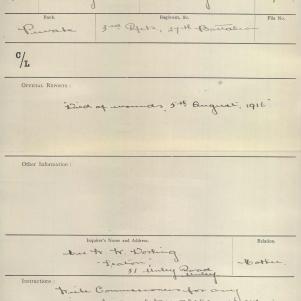 Rank. Regiment, &c. File No.
Private 3rd Rfts, 27th Battalion
C/L
OFFICIAL REPORTS :
"Died of wounds, 5th August, 1916"
Other Information :
Inquirer's Name and Address. Relation.
Mrs
Unley Road Mother
Unley
Instructions :
Write Commissioners for any